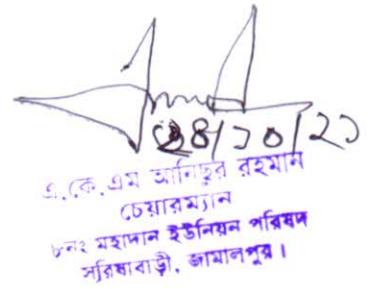 ২৪/১০/২১
এ.কে.এম আনিছুর রহমান
চেয়ারম্যান
৮নং মহাদান ইউনিয়ন পরিষদ
সরিষাবাড়ী, জামালপুর।